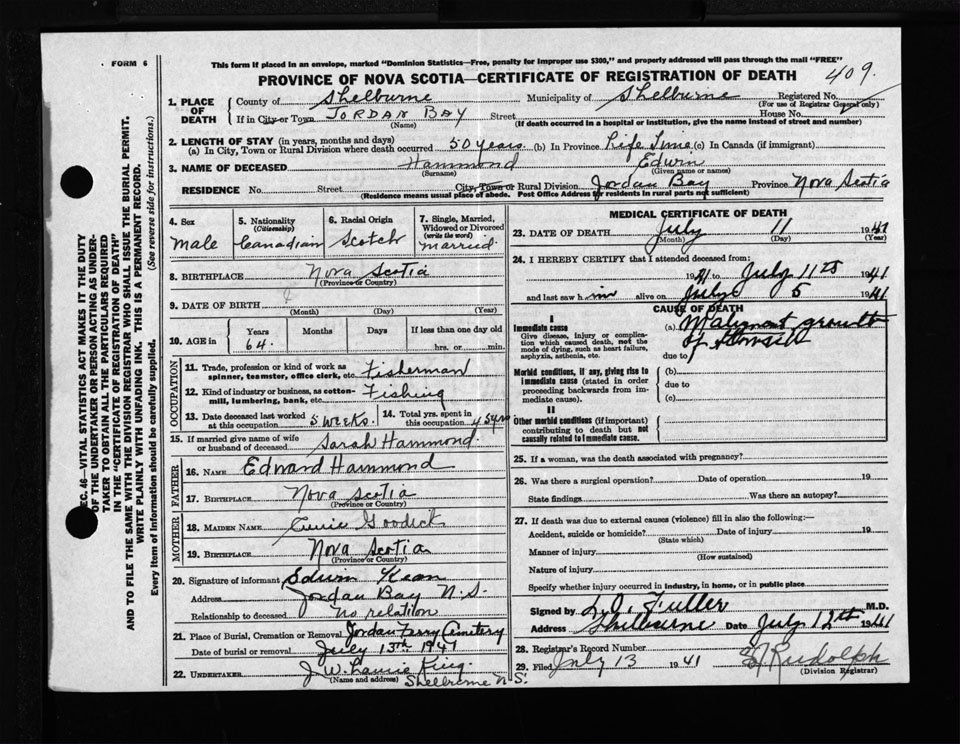 FORM 6
This form if placed in an envelope, marked "Dominion Statistics—Free, penalty for improper use $300," and properly addressed will pass through the mail "FREE"
PROVINCE OF NOVA SCOTIA—CERTIFICATE OF REGISTRATION OF DEATH
409.
1. PLACE OF DEATH
County of Shelburne Municipality of Shelburne Registered No.
(For use of Registrar General only)
If in City or Town JORDAN BAY Street House No.
(Name) (If death occurred in a hospital or institution, give the name instead of street and number)
2. LENGTH OF STAY (in years, months and days)
(a) In City, Town or Rural Division where death occurred 50 years. (b) In Province Life Time (c) In Canada (if immigrant)
3. NAME OF DECEASED Hammond Edwin
(Surname) (Given name or names)
RESIDENCE No. Street City, Town or Rural Division Jordan Bay Province Nova Scotia
(Residence means usual place of abode. Post Office Address for residents in rural parts not sufficient)
4. Sex male
5. Nationality (Citizenship) Canadian
6. Racial Origin Scotch
7. Single, Married, Widowed or Divorced (write the word) married
8. BIRTHPLACE Nova Scotia
(Province or Country)
9. DATE OF BIRTH
(Month) (Day) (Year)
10. AGE in Years Months Days If less than one day old
64. hrs. or min.
OCCUPATION
11. Trade, profession or kind of work as spinner, teamster, office clerk, etc. Fisherman
12. Kind of industry or business, as cotton-mill, lumbering, bank, etc. Fishing
13. Date deceased last worked at this occupation 5 weeks.
14. Total yrs. spent in this occupation 45 yrs
15. If married give name of wife or husband of deceased Sarah Hammond.
FATHER
16. NAME Edward Hammond
17. BIRTHPLACE Nova Scotia
(Province or Country)
MOTHER
18. MAIDEN NAME Goodick
19. BIRTHPLACE Nova Scotia
(Province or Country)
20. Signature of informant Edwin Kean
Address Jordan Bay N.S.
Relationship to deceased no relation
21. Place of Burial, Cremation or Removal Jordan Ferry Cemetery
Date of burial or removal July 13th 1941
22. UNDERTAKER J.W. King.
(Name and address) Shelburne N.S.
MEDICAL CERTIFICATE OF DEATH
23. DATE OF DEATH July 11 1941
(Month) (Day) (Year)
24. I HEREBY CERTIFY that I attended deceased from:
1941 to July 11th 1941
and last saw him alive on July 5 1941
CAUSE OF DEATH
I
Immediate cause
Give disease, injury or complication which caused death, not the mode of dying, such as heart failure, asphyxia, asthenia, etc.
(a) Malignant growth
of
due to
Morbid conditions, if any, giving rise to immediate cause (stated in order proceeding backwards from immediate cause).
(b)
due to
(c)
II
Other morbid conditions (if important) contributing to death but not causally related to immediate cause.
25. If a woman, was the death associated with pregnancy?
26. Was there a surgical operation? Date of operation 19
State findings Was there an autopsy?
27. If death was due to external causes (violence) fill in also the following:—
Accident, suicide or homicide? Date of injury 19
(State which)
Manner of injury
(How sustained)
Nature of injury
Specify whether injury occurred in industry, in home, or in public place
Signed by Fuller M.D.
Address Shelburne Date July 12th 1941
28. Registrar's Record Number
29. Filed July 13 1941 Rudolph
(Division Registrar)
SEC. 46—VITAL STATISTICS ACT MAKES IT THE DUTY
OF THE UNDERTAKER OR PERSON ACTING AS UNDER-
TAKER TO OBTAIN ALL THE PARTICULARS REQUIRED
IN THE "CERTIFICATE OF REGISTRATION OF DEATH"
AND TO FILE THE SAME WITH THE DIVISION REGISTRAR WHO SHALL ISSUE THE BURIAL PERMIT.
WRITE PLAINLY WITH UNFADING INK. THIS IS A PERMANENT RECORD.
Every item of Information should be carefully supplied. (See reverse side for instructions.)